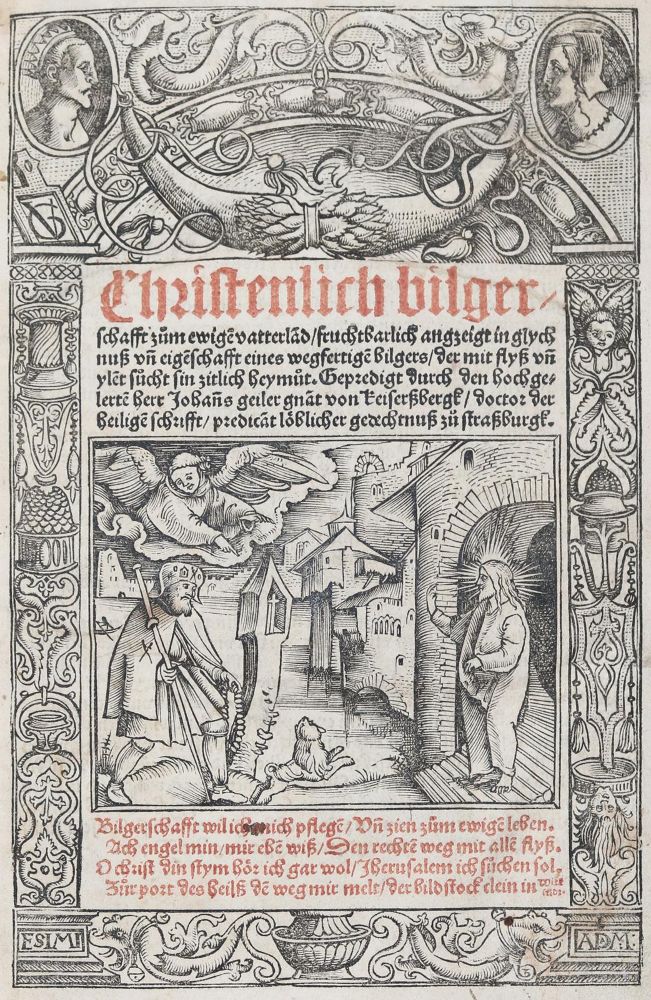 VG
Christenlich bilger⸗
schafft zům ewigē vatterlād/fruchtbarlich angzeigt in glych
nuß vñ eigēschafft eines wegfertigē bilgers/der mit flyß vñ
ylēt sůcht sin zitlich heymůt. Gepredigt durch den hochge⸗
lertē herr Johañs geiler gnāt von Keiserßbergk/ doctor der
heiligē schrifft/ predicāt löblicher gedechtnuß zů straßburgk.
Bilgerschafft wil ich mich pflegē/ Vñ zien zům ewigē leben.
Ach engel min/mir ebē wiß/ Den rechtē weg mit allē flyß.
O christ din stym hör ich gar wol/Jherusalem ich sůchen sol,
Zůr port des heilß dē weg mir melt/der bildstock elein in
ESIMI
ADM: